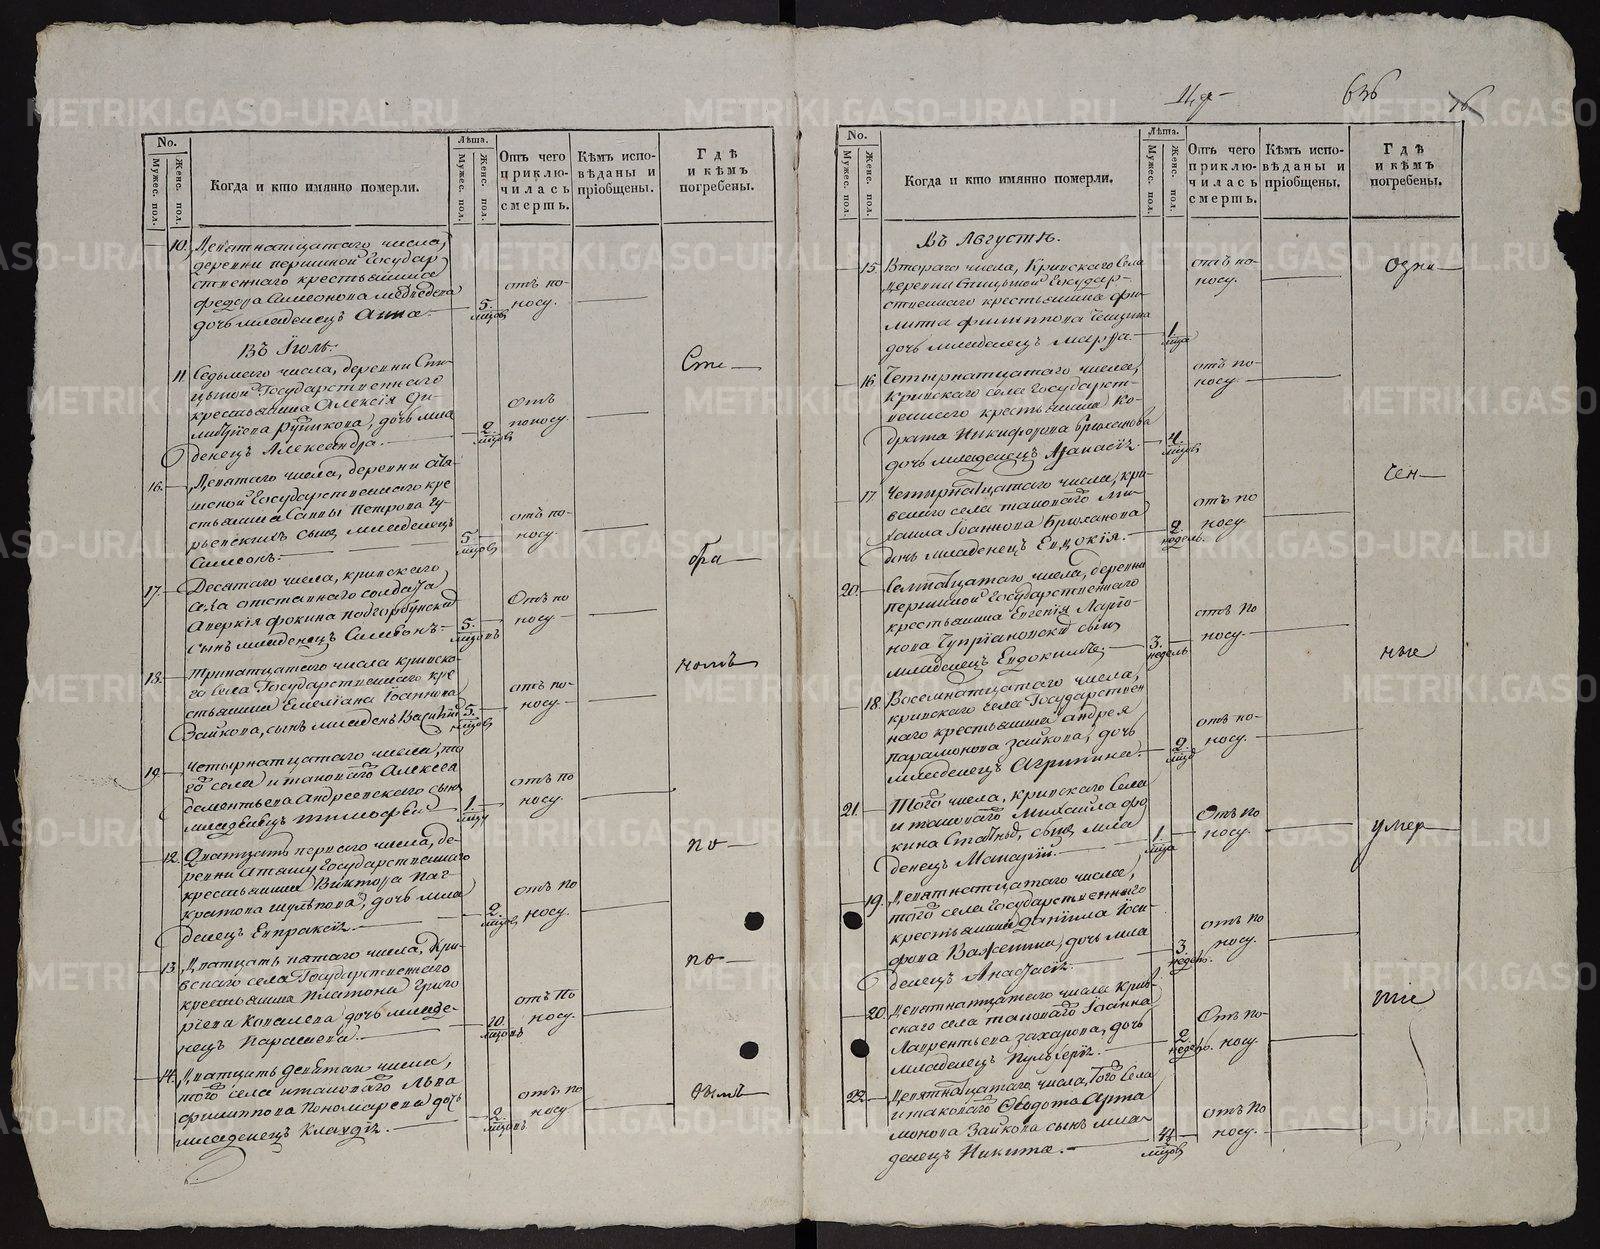 No.
Мужес. пол.
Женс. пол.
Когда и кто имянно померли.
Лѣта.
Мужес. пол.
Женс. пол.
Отъ чего
приклю-
чилась
смерть.
Кѣмъ испо-
вѣданы и
пріобщены.
Гдѣ
и кѣмъ
погребены.
10. Девятнатцатаго числа,
деревни першиной Государ
ственнаго крестьянина
Федора Симеонова Медведева
дочь младенецъ Анна.
5.
мцовъ
отъ по-
носу.
Въ Іюль.
11. Седьмаго числа, деревни Спи-
цыной Государственнаго
крестьянина Алексія
дочь мла
денецъ Александра.
2
мцовъ
отъ
поносу.
16. Девятаго числа, деревни
Государственнаго кре
стьянина Саввы Петрова
сынъ младенецъ
Симеонъ.
5
мцовъ
отъ по-
носу.
17. Десятаго числа, кривскаго
села отставнаго солдата
Аверкія Фокина Подгорбунскихъ
сынъ младенецъ
5.
мцовъ
Отъ по
носу
18. Тринатцатаго числа кривска-
го села Государственнаго кре
стьянина Емеліана Іоаннова
Зайкова, сынъ младенъ Василій
5.
мцовъ
отъ по-
носу.
19. Четырнатцатаго числа, то
го села и таковаго Алексея
Дементьева Андреевскаго сынъ
младенецъ Тимофей
1.
мцу
отъ по
носу.
12. Дватцать перваго числа, де-
ревни Государственнаго
крестьянина Виктора Пан-
кратова дочь мла
денецъ Евпраксія.
2.
мцовъ
отъ по
носу.
13. Дватцать пятаго числа, Кри-
вскаго села Государственнаго
крестьянина Платона Григо
ріева Ковалева дочь младе-
нецъ Параскева.
10.
мцовъ
отъ по
носу.
14. Дватцать девятаго числа,
того села и таковаго Льва
Филиппова Пономарева дочь
младенецъ Клавдія.
2.
мцовъ
отъ по
носу.
Сте
фа
номъ
по
по
вымъ
636
16
No.
Мужес. пол.
Женс. пол.
Когда и кто имянно померли.
Лѣта.
Мужес. пол.
Женс. пол.
Отъ чего
приклю-
чилась
смерть.
Кѣмъ испо-
вѣданы и
пріобщены.
Гдѣ
и кѣмъ
погребены.
Въ Августѣ.
15. Втораго числа, Кривскаго Села
деревни Спицыной Государ-
ственнаго крестьянина Фи-
липпа Филиппова
дочь младенецъ Марфа
1.
мца
отъ по-
носу.
16. Четырнатцатаго числа,
Кривскаго села Государст-
веннаго крестьянина Ко-
драта Никифорова Брюханова
дочь младенецъ Афанасія.
4.
мцовъ
отъ по-
носу.
17. Четырнатцатаго числа, кри-
вскаго села таковаго Ми-
хаила Іоаннова Брюханова
дочь младенецъ Евдокія.
2
недель.
отъ по
носу
20. Семнатцатаго числа, деревни
першиной Государственнаго
крестьянина Евгенія Ларіо-
нова сынъ
младенецъ Евдокимъ.
3.
недель
отъ по
носу.
18. Восемнатцатаго числа,
кривскаго села Государствен
наго крестьянина Андрея
Парамонова Зайкова, дочь
младенецъ Агрипина.
2.
мцовъ
отъ по-
носу.
21. Того числа, кривскаго Села
и таковаго Михайла Фо
кина сынъ мла
денецъ Макарій.
1.
мца
Отъ по
носу.
19. Девятнатцатаго числа,
того села Государственнаго
крестьянина Даніила Іоси-
фова Важенина, дочь мла
денецъ Анастасія.
3.
недель.
отъ по
носу.
20. Девятнатцатаго числа Крив-
скаго села таковаго Іоанна
Лаврентьева Захарова, дочь
младенецъ Пульхерія.
2.
недель.
Отъ по-
носу.
22. Девятнатцатаго числа, Того Села
и таковаго Федота Арта
монова Зайкова сынъ мла-
денецъ Никита.
4
мцовъ
отъ по
носу.
озна
чен
ные
умер
шіе
METRIKI.GASO-URAL.RU